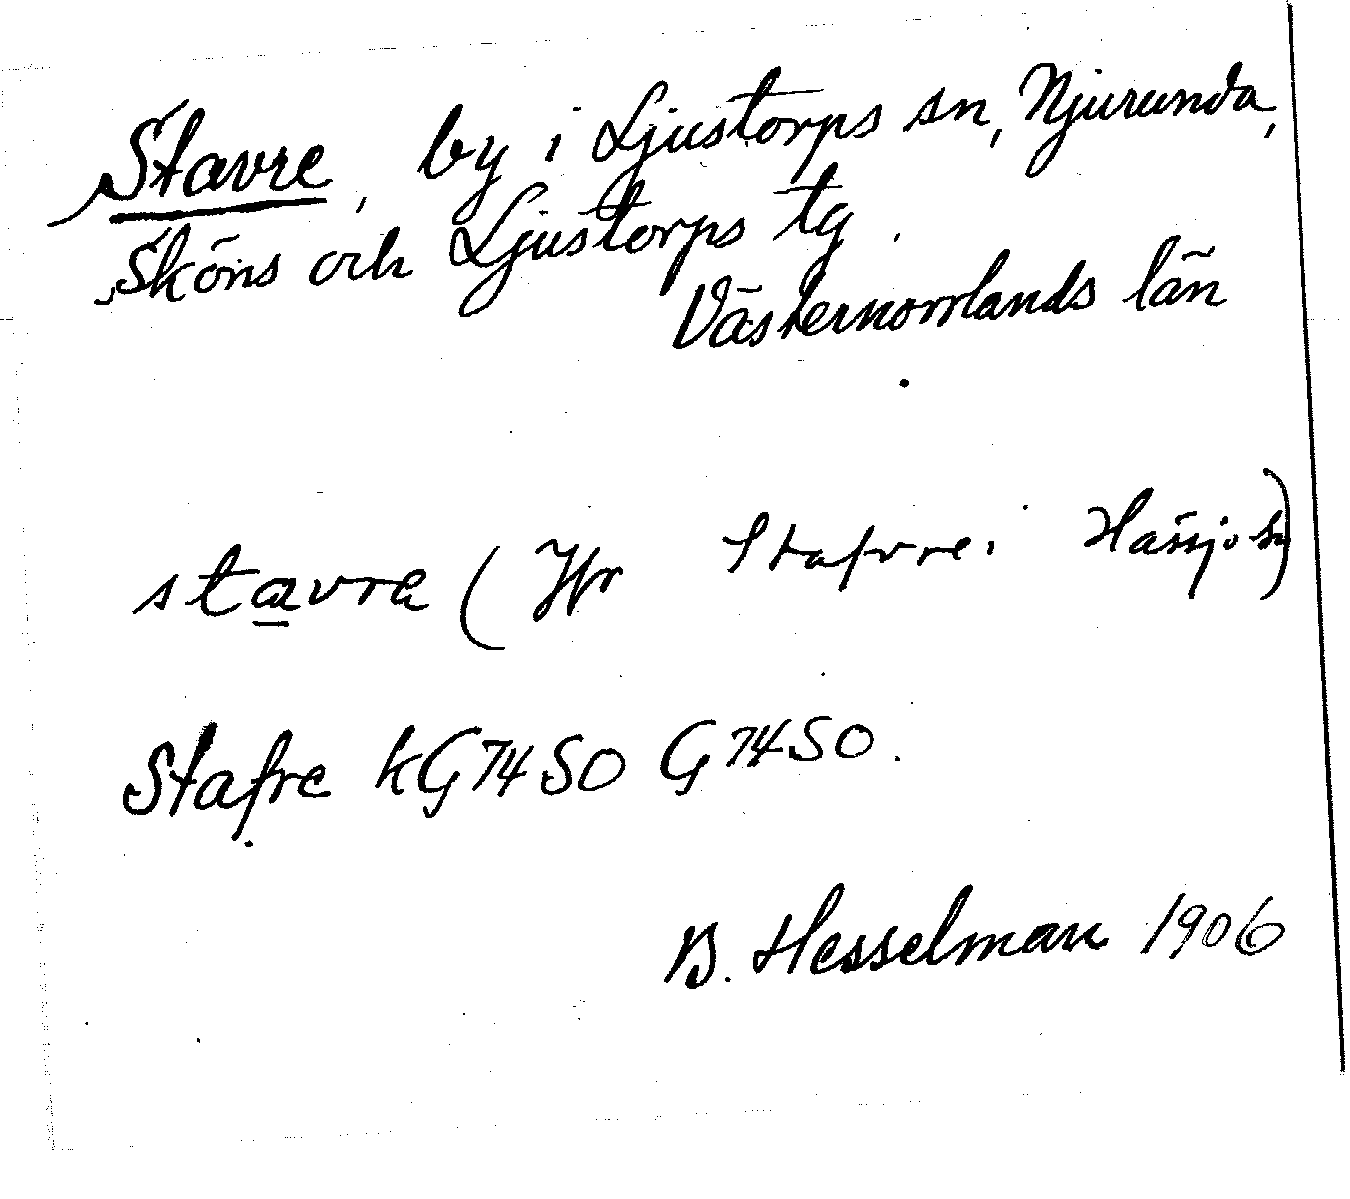 Stavre, by i Ljustorps sn, Njurunda,
Sköns och Ljustorps tg.
Västernorrlands län
stavra (Jfr Stafvre i Hässjö sn)
Stafre kG 74 SO G 74 SO.
B. Hesselman 1906